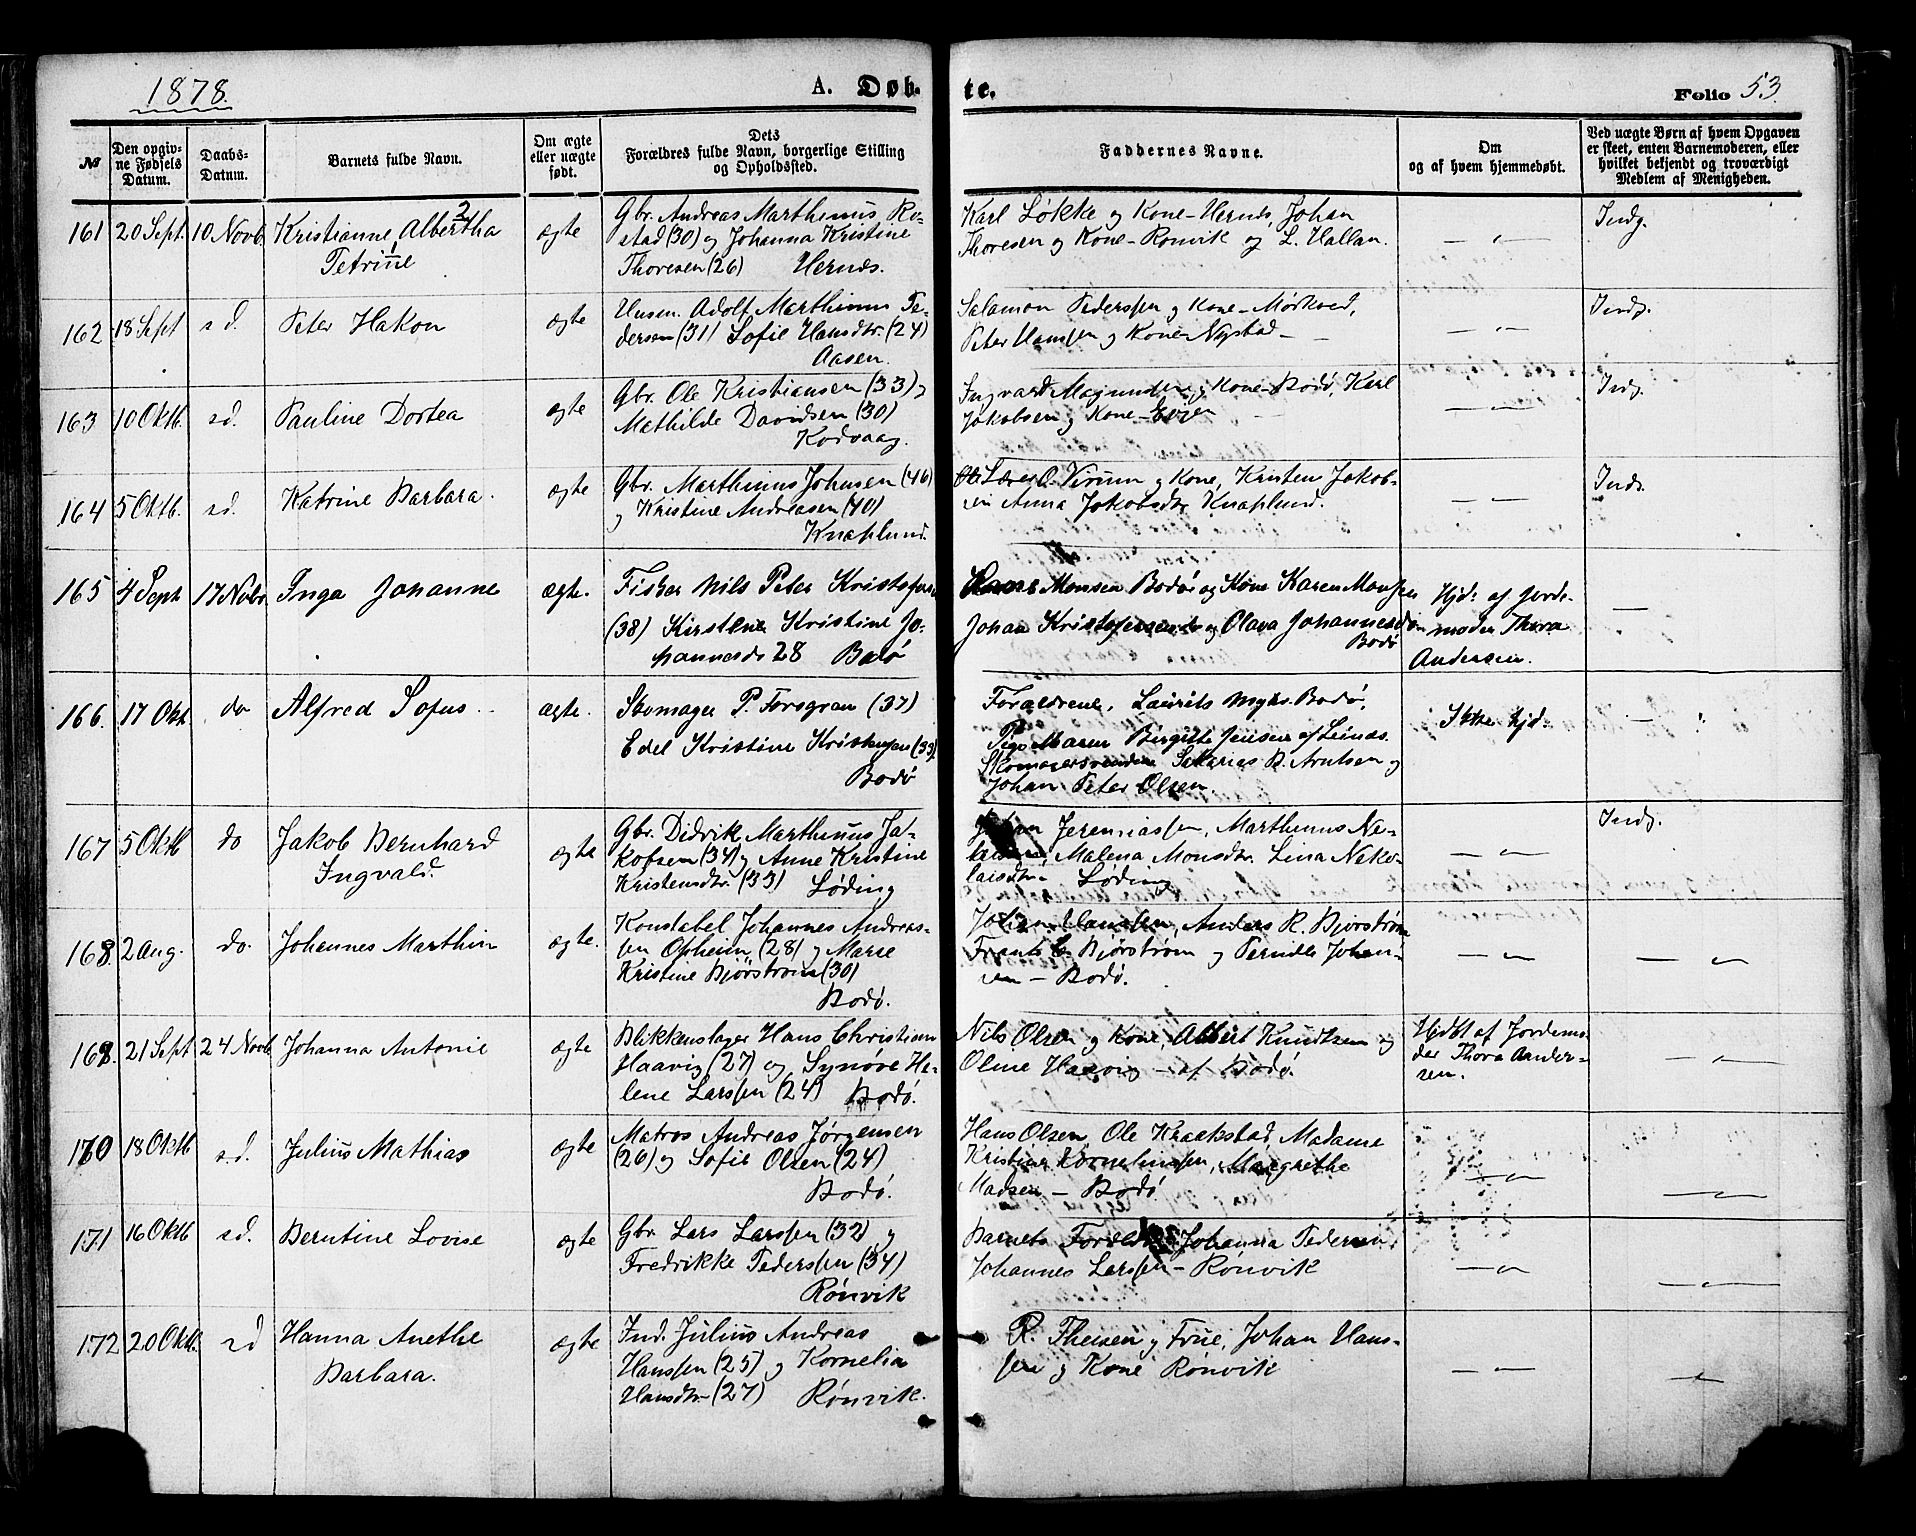 1878.
A. Døb-
te.
Folio 53.
№
Den opgiv-
ne Fødsels
Datum.
Daabs-
Datum.
Barnets fulde Navn.
Om ægte
eller uægte
født.
Dets
Forældres fulde Navn, borgerlige Stilling
og Opholdssted.
Faddernes Navne.
Om
og af hvem hjemmedøbt.
Ved uægte Børn af hvem Opgaven
er skeet, enten Barnemoderen, eller
hvilket bekjendt og troværdigt
Medlem af Menigheden.
161 20 Sept. 10 Novb. Kristianne Albertha
2
1
Petrine
ægte
Gbr. Andreas Marthinus Ro-
stad (30) og Johanna Kristine
Thoresen (26) Hernæs.
Karl Løkke og Kone - Hernæs, Johan
Thoresen og Kone - Rønvik og L. Hallan.
Indg.
162 18 Sept s.d. Peter Hakon ægte
Husm. Adolf Marthinus Pe-
dersen (31) Sofie Hansdtr. (24)
Aasen.
Salamon Pederssen og Kone - Mørkved,
Peter Hanssen og Kone Nystad -
Indg.
163 10 Oktb. s.d. Pauline Dortea ægte
Gbr. Ole Kristiansen (33) og
Mathilde Davidsen (30)
Kodvaag.
Ingvard Magnusen og Kone - Bodø, Karl
Jakobsen og Kone - Evjen
Indg.
164 5 Oktb. s.d. Katrine Barbara. ægte
Gbr. Marthinus Johnsen (46)
og Kristine Andreasen (40)
Knaplund.
Lærer O. Virum og Kone, Kristen Jakob-
sen Anna Jakobsdtr Knaplund.
Indg.
165 4 Sept 17 Novbr Inga Johanne ægte.
Fisker Nils Peter Kristofersen
(38) Kirstene Kristine Jo-
hannesd. 28 Bodø
Monsen Bodø og Kone Karen Monsen
Johan Kristofersen og Olava Johannesdtr
Bodø
Hjd: af Jorde-
moder Thora
Andersen.
166. 17 Okt do Alfred Sofus. ægte.
Skomager P. Forsgren (37)
Edel Kristine Kristensen (33)
Bodø
Forældrene, Laurits Bodø,
Pige Maren Birgitte Jensen af Leines.
Skomagersvendene Sakarias B. Arntsen og
Johan Peter Olsen.
Ikke hjd.
167 5 Oktb do Jakob Bernhard
Ingvald.
ægte
Gbr. Didrik Marthinus Ja-
kobsen (34) og Anne Kristine
Kristensdtr. (33) Løding
Jeremiassen, Marthinus Ne-
Malena Monsdtr. Lina Neko-
laisdtr - Løding
Indg.
168. 2 Aug. do. Johannes Marthin ægte.
Konstabel Johannes Andreas-
sen Opheim (28) og Marie
Kristine Bjørstrøm (30)
Bodø.
Johan Hanssen, Anders R. Bjørstrøm
Frants E. Bjørstrøm og Pernille Johan-
sen - Bodø.
169. 21 Sept 24 Novb. Johanna Antonie ægte
Blikkenslager Hans Christian
Haavig (27) og Synøve He-
lene Larssen (24) Bodø.
Nils Olsen og Kone, Albert Knudtsen og
Oline Haavig - af Bodø.
Hjdbt af Jordemo-
der Thora Ander-
sen.
170 18 Oktb s.d. Julius Mathias ægte
Matros Andreas Jørgensen
(26) og Sofie Olsen (24)
Bodø.
Hans Olsen, Ole Kraakstad, Madame
Kristine Kornelinssen, Margrethe
Madsen - Bodø
171 16 Oktb s.d. Berntine Lovise ægte
Gbr. Lars Larssen (32) og
Fredrikke Pederssen (34)
Rønvik
Barnets Forældre Johanna Pedersen
Johannes Larssen - Rønvik
172 20 Oktb. s.d Hanna Anethe
Barbara.
ægte
Ind. Julius Andreas
Hanssen (25) og Kornelia
Hansdtr - (27) Rønvik.
R. Theisen og Frue, Johan Hans-
sen og Kone Rønvik